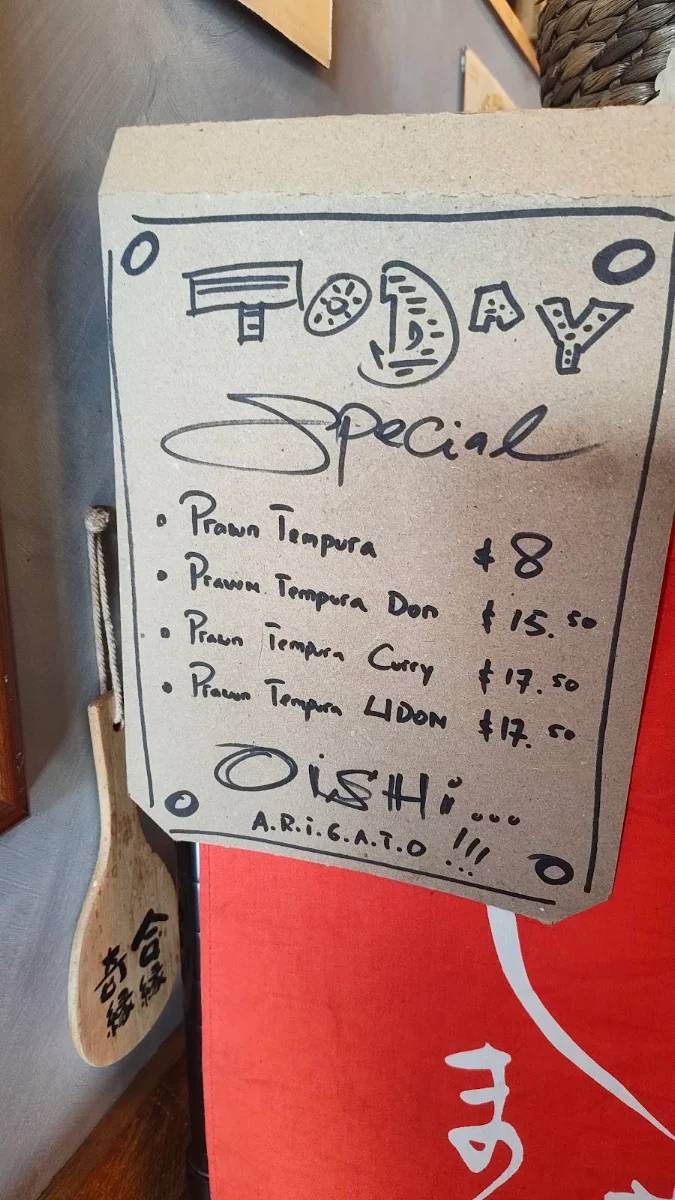 TODAY
Special
• Prawn Tempura $8
• Prawn Tempura Don $15.50
• Prawn Tempura Curry $17.50
• Prawn Tempura UDON $17.50
OiSHi...
A.R.i.G.A.T.O !!!
合縁
奇縁
ま
の